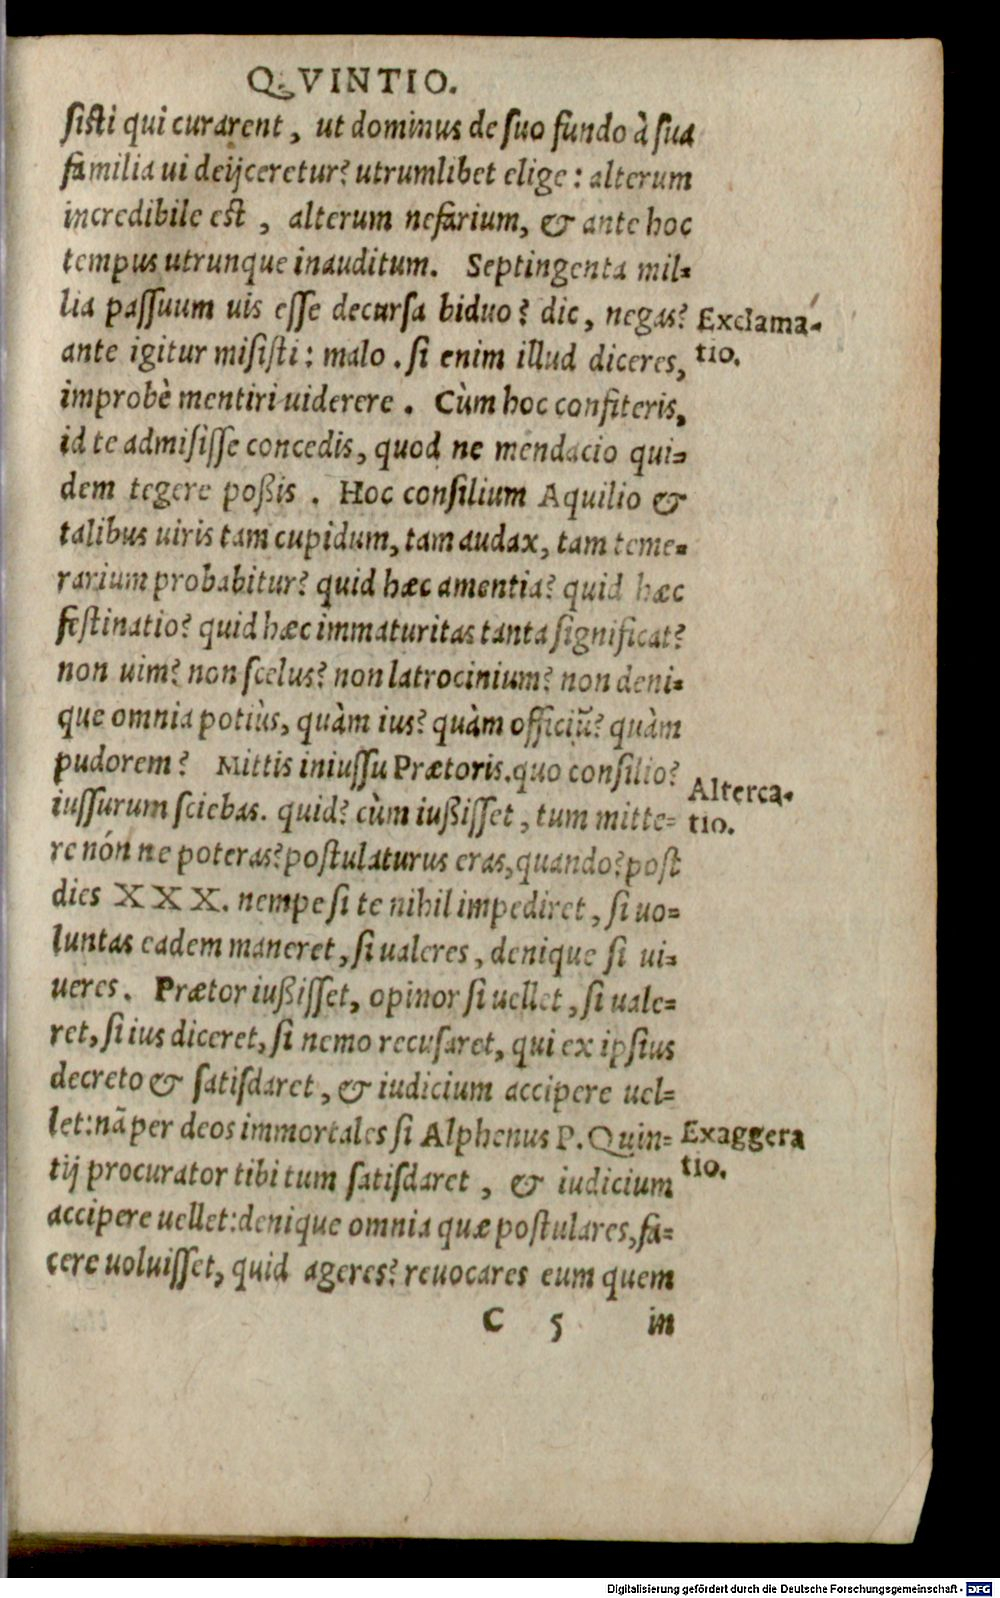 QVINTIO.
sisti qui curarent, ut dominus de suo fundo à sua
familia ui deijceretur? utrumlibet elige: alterum
incredibile est, alterum nefarium, & ante hoc
tempus utrunque inauditum. Septingenta mil-
lia passuum uis esse decursa biduo? dic, negas?
Exclama-
ante igitur misisti: malo. si enim illud diceres,
tio.
improbè mentiri uiderere. Cùm hoc confiteris,
id te admisisse concedis, quod ne mendacio qui-
dem tegere poßis. Hoc consilium Aquilio &
talibus uiris tam cupidum, tam audax, tam teme-
rarium probabitur? quid hæc amentia? quid hæc
festinatio? quid hæc immaturitas tanta significat?
non uim? non scelus? non latrocinium? non deni-
que omnia potiùs, quàm ius? quàm officiũ? quàm
pudorem? Mittis iniussu Prætoris. quo consilio?
Alterca-
iussurum sciebas. quid? cùm iußisset, tum mitte-
tio.
re nón ne poteras? postulaturus eras, quando? post
dies XXX. nempe si te nihil impediret, si uo-
luntas eadem maneret, si ualeres, denique si ui-
ueres. Prætor iußisset, opinor si uellet, si uale-
ret, si ius diceret, si nemo recusaret, qui ex ipsius
decreto & satisdaret, & iudicium accipere uel-
let: nã per deos immortales si Alphenus P. Quin-
Exaggera
tij procurator tibi tum satisdaret, & iudicium
tio.
accipere uellet: denique omnia quæ postulares, fa-
cere uoluisset, quid ageres? reuocares eum quem
C 5 in
Digitalisierung gefördert durch die Deutsche Forschungsgemeinschaft - DFG